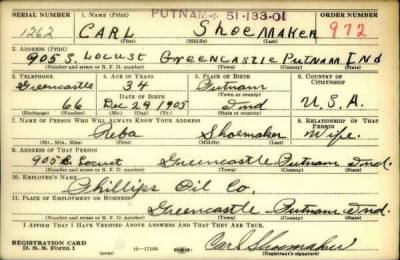 PUTNAM 51-133-01
SERIAL NUMBER 1. NAME (Print) ORDER NUMBER
1262 CARL Shoemaker 972
(First) (Middle) (Last)
2. ADDRESS (Print)
905 S. Locust Greencastle Putnam Ind
(Number and street or R. F. D. number) (Town) (County) (State)
3. TELEPHONE 4. AGE IN YEARS 5. PLACE OF BIRTH 6. COUNTRY OF CITIZENSHIP
Greencastle 34 Putnam
DATE OF BIRTH (Town or county)
66 Dec 29 1905 Ind U.S.A.
(Exchange) (Number) (Mo.) (Day) (Yr.) (State or country)
7. NAME OF PERSON WHO WILL ALWAYS KNOW YOUR ADDRESS 8. RELATIONSHIP OF THAT PERSON
Reba Shoemaker Wife.
(Mr., Mrs., Miss) (First) (Middle) (Last)
9. ADDRESS OF THAT PERSON
905 S. Locust Greencastle Putnam Ind.
(Number and street or R. F. D. number) (Town) (County) (State)
10. EMPLOYER'S NAME
Phillips Oil Co.
11. PLACE OF EMPLOYMENT OR BUSINESS
Greencastle Putnam Ind.
(Number and street or R. F. D. number) (Town) (County) (State)
I AFFIRM THAT I HAVE VERIFIED ABOVE ANSWERS AND THAT THEY ARE TRUE.
REGISTRATION CARD
D. S. S. Form 1 Carl Shoemaker
(Registrant's signature)